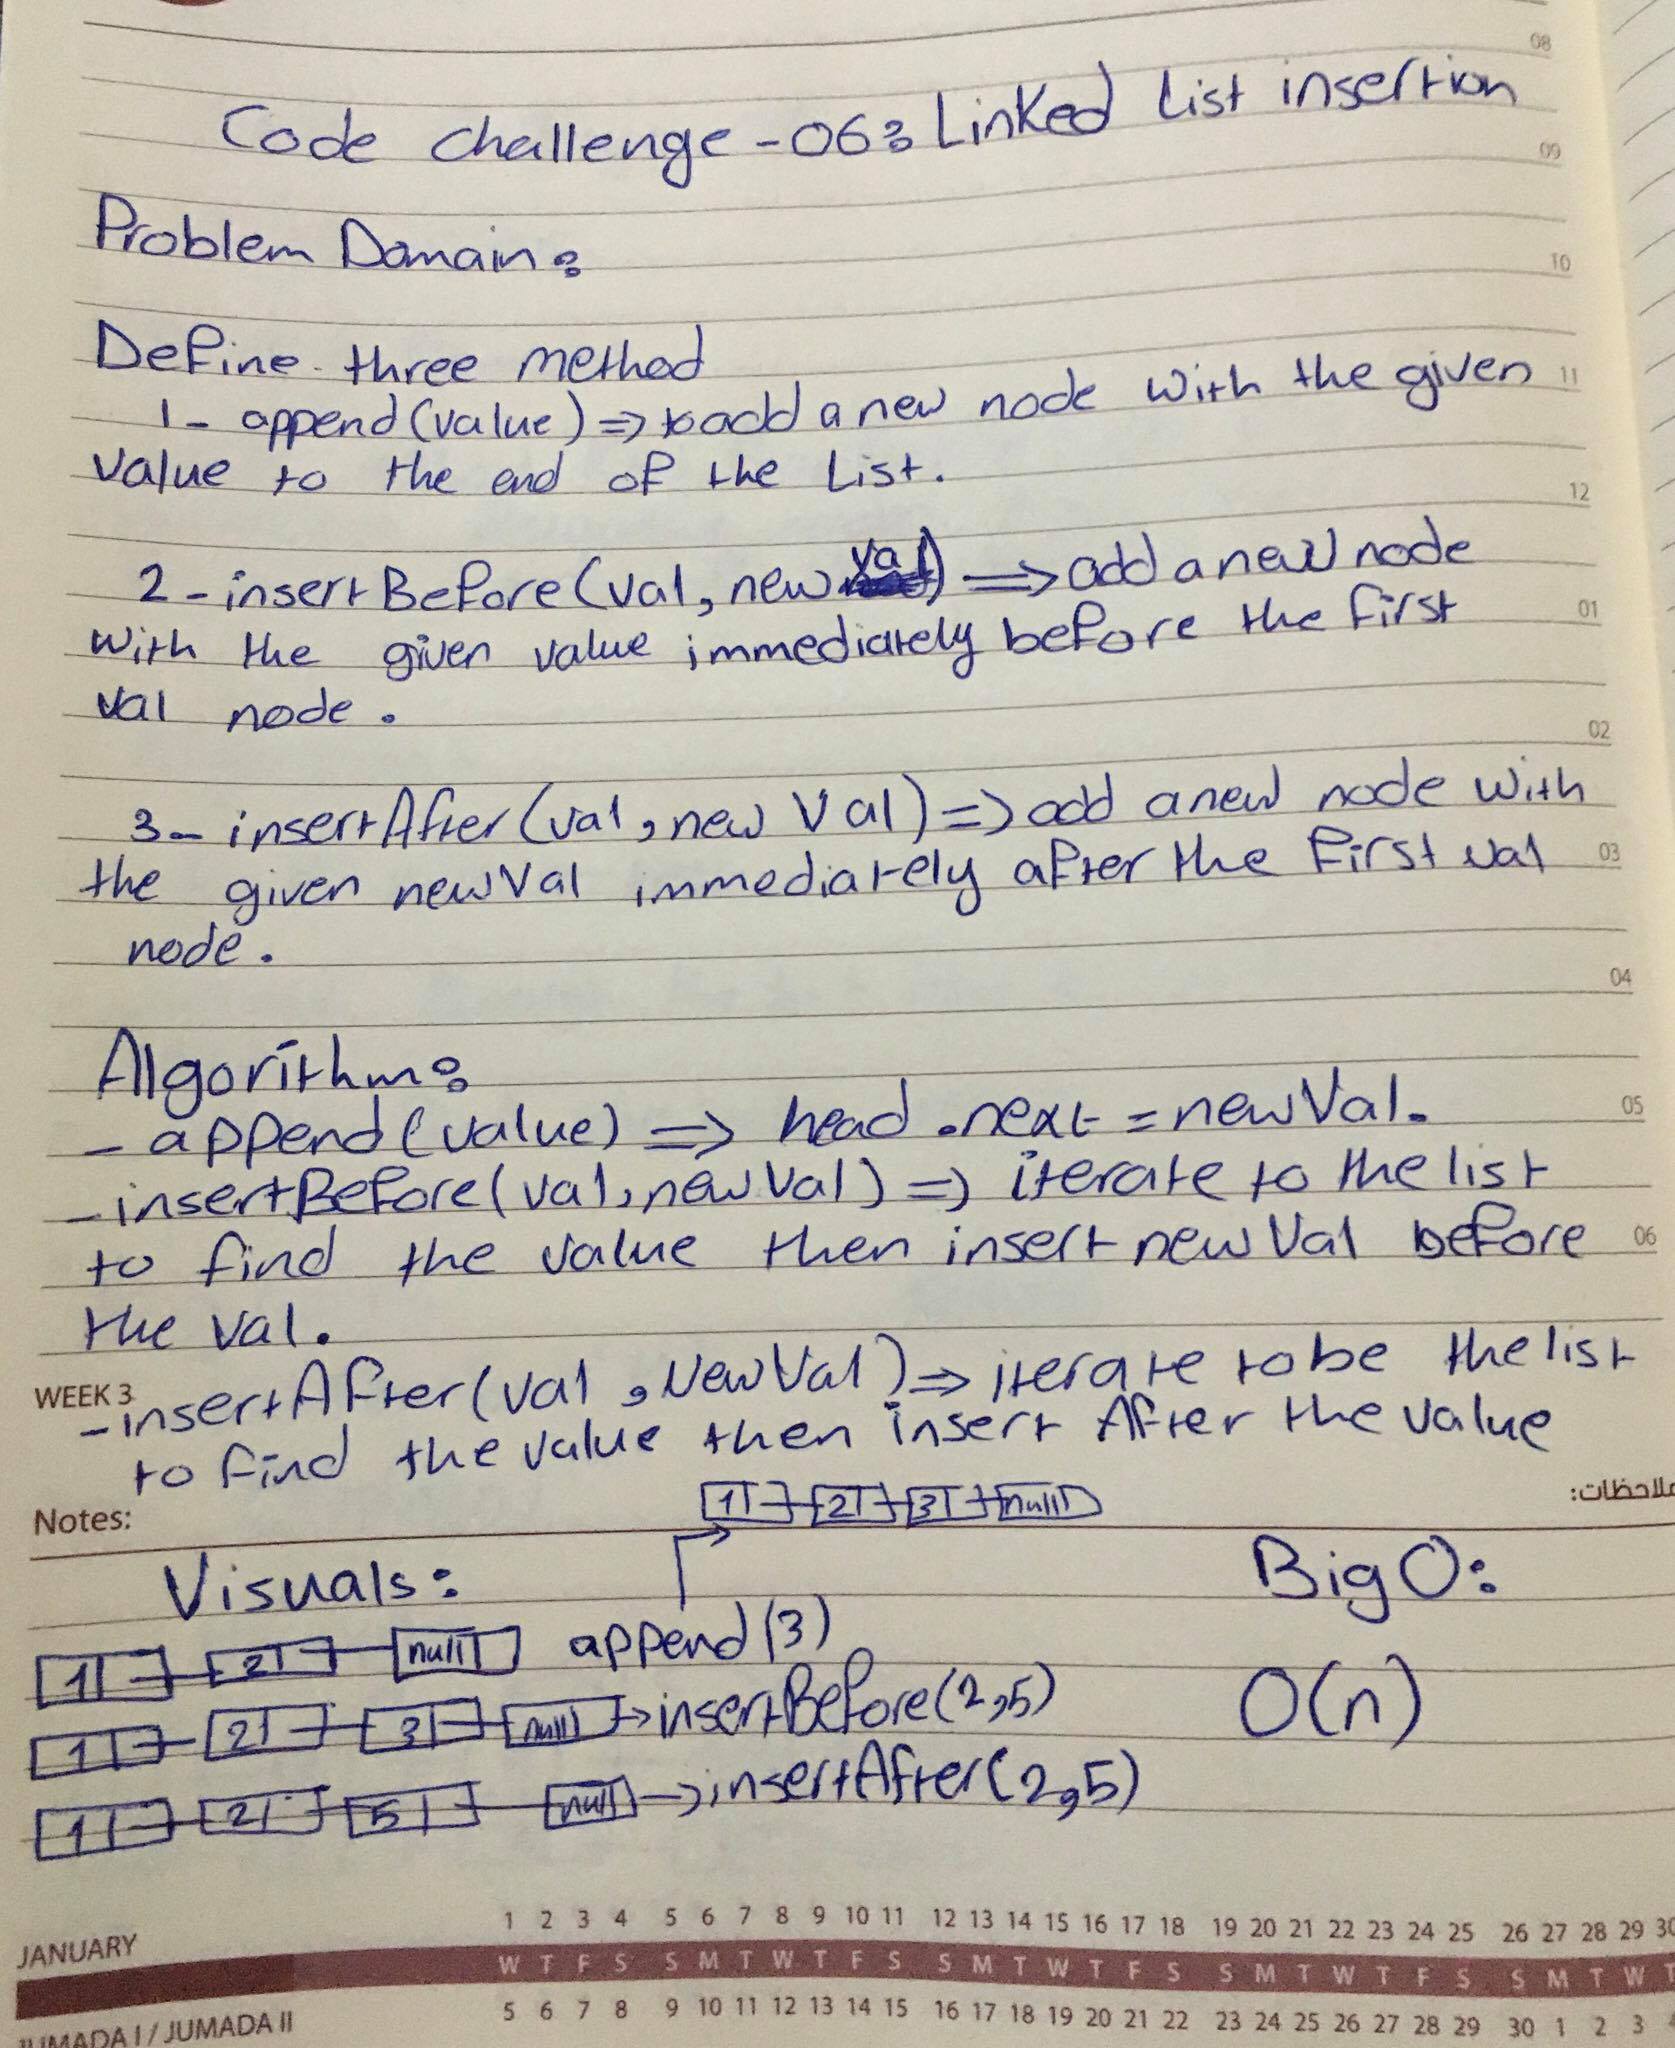 08
Code challenge - 06: Linked list insertion
09
Problem Domain:
10
Define three method
1- append(value) => to add a new node with the given
11
value to the end of the list.
12
2- insertBefore(val, new val) => add a new node
with the given value immediately before the first
01
val node.
02
3- insertAfter(val, new Val) => add a new node with
the given newVal immediately after the first val
03
node.
04
Algorithm:
- append(value) => head .next = newVal.
05
- insertBefore(val, newVal) => iterate to the list
to find the value then insert newVal before
06
the val.
WEEK 3
- insertAfter(val, NewVal) => iterate to be the list
to find the value then insert After the value
1 2 3 null
Notes:
ملاحظات:
Visuals:
Big O:
1 2 null append(3)
1 2 3 null → insertBefore(2,5)
O(n)
1 2 5 null → insertAfter(2,5)
1 2 3 4 5 6 7 8 9 10 11 12 13 14 15 16 17 18 19 20 21 22 23 24 25 26 27 28 29 30
JANUARY
W T F S S M T W T F S S M T W T F S S M T W T F S S M T W T
5 6 7 8 9 10 11 12 13 14 15 16 17 18 19 20 21 22 23 24 25 26 27 28 29 30 1 2 3 4
JUMADA I / JUMADA II